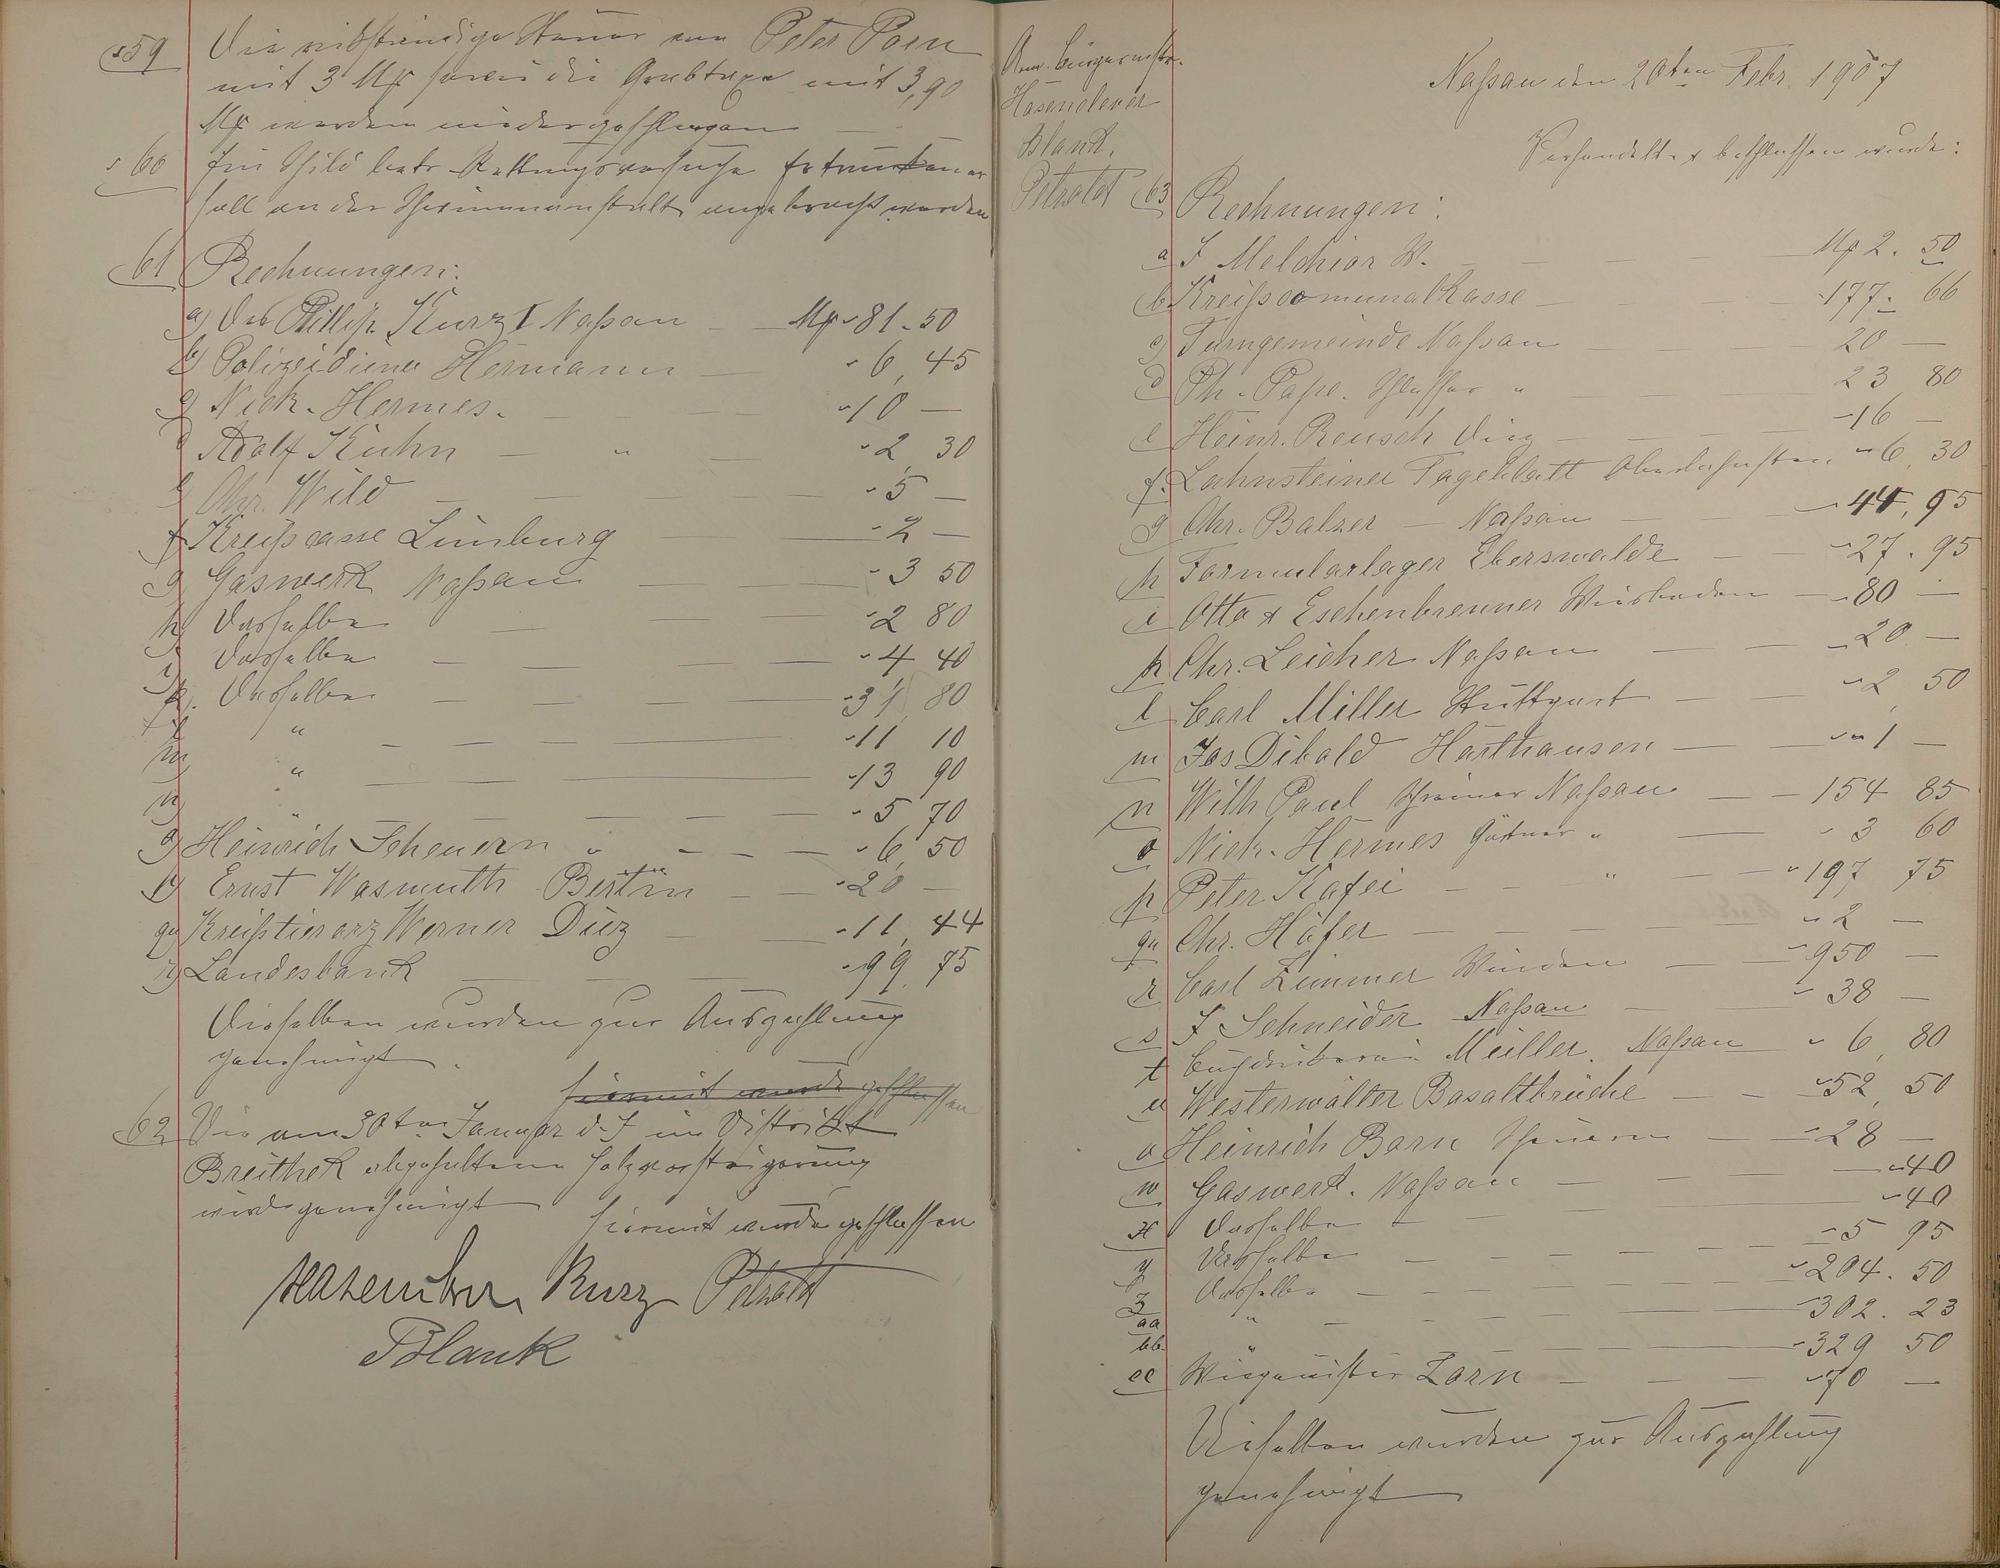 59 Die rückständige Steuer von Peter Born
mit 3 Mk sowie die Grabtaxe mit 3,90
Mk werden niedergeschlagen
60 Ein Schild betr. Rettungsversuche Ertrunkener
soll an der Schwimmanstalt angebracht werden
61 Rechnungen:
a) Des Phillip Kurz I Naßau Mk 81.50
b) Polizeidiener Hermann 6,45
c) Nick. Hermes. 10 —
d Adolf Kuhn " 2,30
e Chr. Wild 5 —
f Kreißcasse Limburg 2 —
g Gaswerk Naßau 3 50
h Dasselbe 2 80
i) Dasselbe 4,40
k). Dasselbe 31,80
l " 11 10
m " 13 90
n 5 70
o) Heinrich Scheuern " 6,50
p) Ernst Wasmuth Berlin 20 —
qu Kreißtierarz Werner Diez 11,44
r) Landesbank 99,75
Dieselben wurden zur Auszahlung
genehmigt.
hiermit wurde geschlossen
62 Die am 30ten Januar d. J im Distrikt
Breithek abgehaltene Holzversteigerung
wird genehmigt
hiermit wurde geschlossen
Hasenclever Kurz Petzoldt
Blank
Anw. Bürgermstr.
Hasenclever
Blank.
Petzoldt
Naßau den 20ten Febr. 1907
Verhandelt & beschlossen wurde:
63 Rechnungen:
a J Melchior W. Mk 2. 50
b Kreißcomunalkasse 177. 66
c) Turngemeinde Naßau 20 —
d Ph. Pape. Schlosser " 23 80
e Heinr. Reusch Diez 16 —
f. Lahnsteiner Tageblatt Oberlahnstein 6,30
g Chr. Balzer — Naßau 44,95
h Formularlager Eberswalde 27.95
i Otto & Eschenbrenner Wiesbaden 80 —
k Chr. Leicher Naßau 20 —
l Carl Miller Stuttgart 2,50
m Jos Dibold Harthausen 1 —
n Wilh Paul Schreiner Naßau 154 85
o Nick. Hermes Gärtner " 3 60
p Peter Kafei " 197,75
qu Chr. Höfer 2 —
r Carl Zimmer Winden 950 —
s J Schneider Naßau 38 —
t Bugdruckerei Müller. Naßau 6,80
u Westerwälter Basaltbrüche 52,50
v Heinrich Born Scheuern 28 —
w Gaswerk. Naßau 40
x Dasselbe 40
y Dasselbe 5 95
z Dasselbe 204. 50
aa " 302. 23
bb " 329 50
cc Wiegemeister Zorn 70 —
Dieselben wurden zur Auszahlung
genehmigt